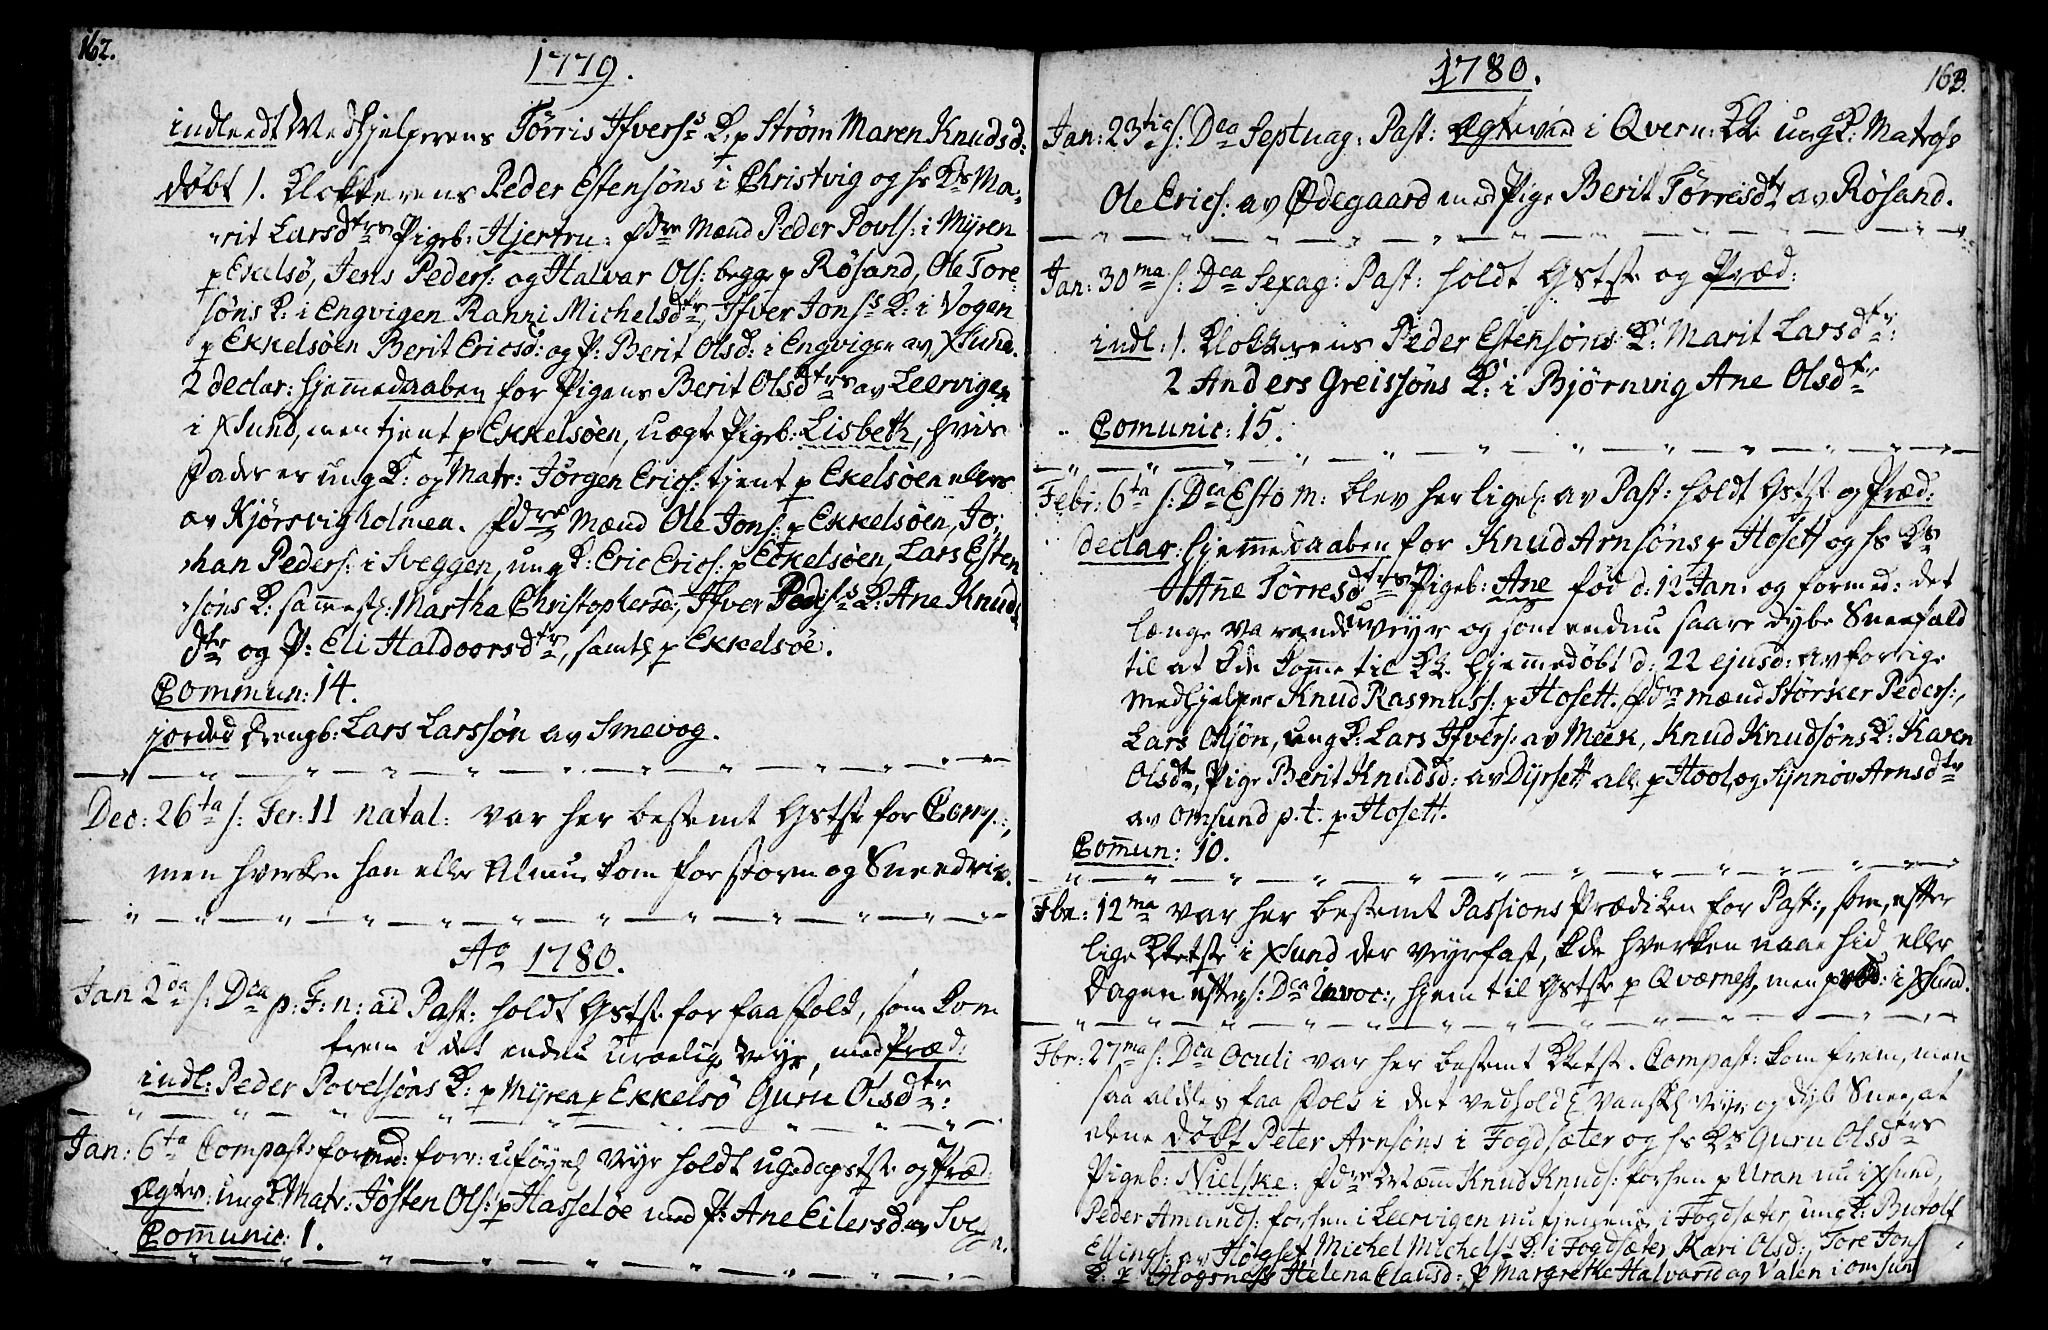 162.
1779.
indleedt Medhjelperens Törris Ifvers:s K. p Ström Maren Knudsd:
döbt 1. Klokkerens Peder Estensöns i Christvig og hs Ks Ma-
rit Larsdtrs Pigeb: Hjertru: fdre Mænd Peder Povls: i Myren
p Ekelsö, Jens Peders: og Halvar Ols: begge p Rösand, Ole Tore-
söns K: i Engvigen Ranni Michelsdtr, Ifver Jons:s K: i Vogen
p Ekkelsöen Berit Ericsd: og P: Berit Olsd: i Engvigen av XSund.
2 declar: hjemmedaaben for Pigens Berit Olsdtrs av Leervigen
i XSund, men tjent p Ekkelsöen, uægte Pigeb: Lisbeth, hvis
Fader er ung K: og Matr: Jörgen Erics: tjent p Ekelsöen ellers
av Kjörsvigholmen. Fdre Mænd Ole Jons: p Ekkelsöen, Jo-
han Peders: i Sveggen, ung K: Eric Erics: p Ekkelsöen, Lars Esten
söns K: sammest: Martha Christophersd:, Ifver Peders:s K: Ane Knuds
dtr og P: Eli Haldoorsdtr, samtl p Ekkelsöe.
Commun: 14.
jorded Drengb: Lars Larssön av Smevog.
Dec: 26ta s: Fer: 11 natal: var her bestemt Gstste for Comp:,
men hverken han eller Almue kom for storm og Sneedriv.
Ao 1780.
Jan 2da s: Dca p: F: n: ad Past: holdt Gstste for faa folk, som kom
frem i det endnu uroelige Veyr, med Præd:
indl: Peder Povelsöns K: p Myren p Ekkelsö Guru Olsdtr:
Jan: 6ta Compast: formed: forr: uföyel Veyr holdt ugedagstste og Præd:
Ægtev: ung K: Matr: Jösten Ols: p Hasselöe med P: Ane Eilersd av Sveggen.
Comunic: 1.
1780.
163.
Jan: 23tia s: Dca Septuag: Past: Ægtevied i Qvern: Kke ung K: Matros
Ole Erics: av Ödegaard med Pige Berit Törresdtr av Rösand.
Jan: 30ma s: Dca Sexag: Past: holdt Gstste og Præd:
indl: 1. Klokkerens Peder Estensöns K: Marit Larsdtr:
2 Anders Greissöns K: i Björnvig Ane Olsdtr
Comunic: 15.
Febr: 6ta s: Dca Esto M: blev her ligel: av Past: holdt Gstst og Præd:
declar: hjemmedaaben for Knud Arnsöns p Hosett og hs Ks
Anne Törresdtrs Pigeb: Ane föd d: 12 Jan: og formed: det
længe varende uveyr og som endnu saare dybe Sneefald
til at kde komme til Kk. hjemmedöbt d: 22 ejusd: av forrige
Medhjelper Knud Rasmuss: p Hosett. fdre mænd Störker Peders:,
Lars Olsön, ung K: Lars Ifvers: av Meek, Knud Knudsöns K: Karen
Olsdtr, Pige Berit Knudsd: av Dyrsett alle p Hool, og Synnöv Arnsdtr
av Omsund p. t. p Hosett.
Comun: 10.
Fbr: 12ma var her bestemt Passions Prædiken for Past:, som, efter
lige Kketste i XSund der veyrfast, kde hverken naae hid eller
Dagen efter s: Dca Invoc:, hjem til Gstste p Qværness, men præd: i XSund.
Fbr: 27ma s: Dca Oculi var her bestemt Kketst. Compast: kom frem, men
saa aldeles faa folk i det vedhold: vanskl: Veyr og dybe Snee, at
alene döbt Peter Arnsöns i Fogdsæter og hs Ks Guru Olsdtrs
Pigeb: Nielske: fdre Knud Knuds: forhen p Uran nu i XSund,
Peder Amunds: forhen i Leervigen nu tjenende i Fogdsæter, ung K: Butolf
Ellings: av Högset, Michel Michels:s K: i Fogdsæter Kari Olsd:, Tore Jons
K: p Hogsness Helena Clausd: P Margrethe Halvarsd av Valen i Omsun